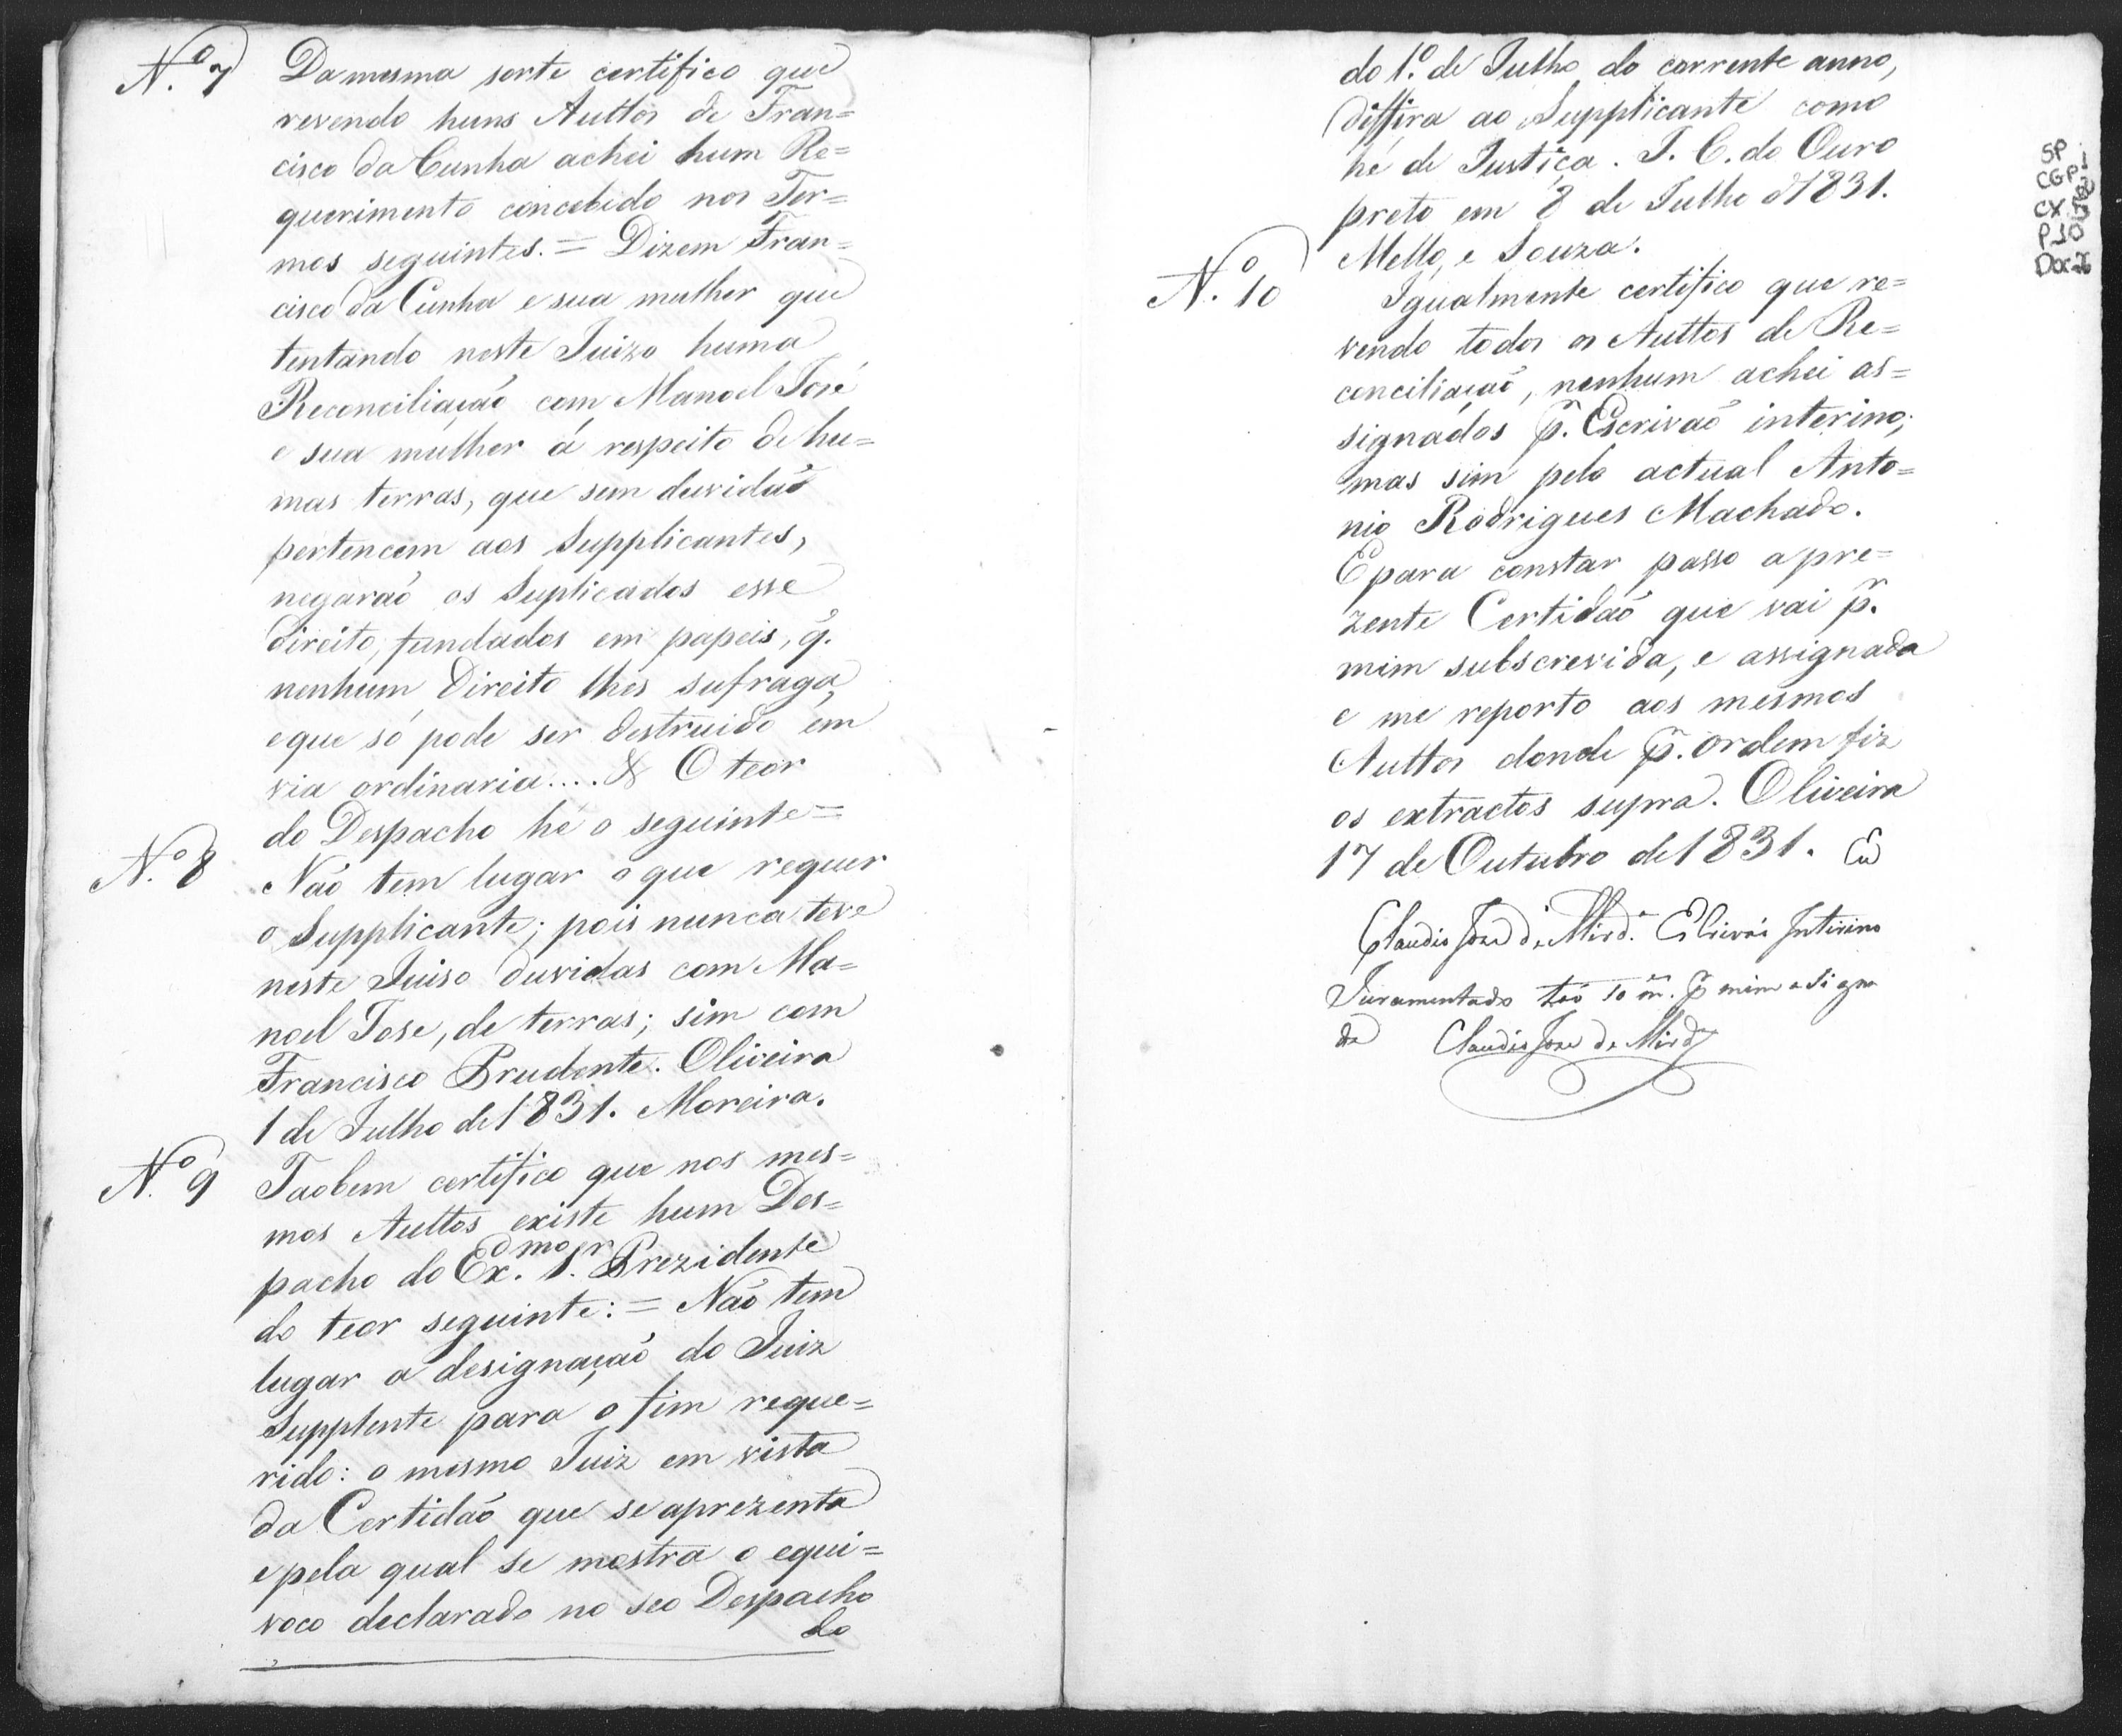 N.º 7 Da mesma sorte certifico que
revendo huns Auttos de Fran=
cisco da Cunha achei hum Re=
querimento concebido nos Ter=
mos seguintes. = Dizem Fran=
cisco da Cunha e sua mulher que
tentando neste Juizo huma
Reconciliaçaõ com Manoel José
e sua mulher á respeito de hu=
mas terras, que sem duvida
pertencem aos Supplicantes,
negaraõ os Suplicados esse
direito, fundados em papeis, q̃.
nenhum Direito lhes sufraga,
e que só pode ser destruido em
via ordinaria.... & O teor
do Despacho hé o seguinte =
N.º 8 Não tem lugar o que requer
o Supplicante; pois nunca teve
neste Juiso duvidas com Ma=
noel Jose, de terras; sim com
Francisco Prudente. Oliveira
1 de Julho de 1831. Moreira.
N.º 9 Taobem certifico que nos mes=
mos Auttos existe hum Des=
pacho do Ex.mo S.r Prezidente
do teor seguinte: = Não tem
lugar a designaçaõ do Juiz
Supplente para o fim reque=
rido: o mesmo Juiz em vista
da Certidaõ que se aprezenta
e pela qual se mostra o equi=
voco declarado no seo Despacho
do
do 1.º de Julho do corrente anno,
diffira ao Supplicante como
hé de Justiça. I. C. do Ouro
preto em 8 de Julho d 1831.
Mello, e Souza.
N.º 10 Igualmente certifico que re=
vendo todos os Auttos de Re=
conciliaçaõ, nenhum achei as=
signados p̃. Escrivaõ interino;
mas sim pelo actual Anto=
nio Rodrigues Machado.
E para constar passo a pre=
zente Certidaõ que vai p̃.
mim subscrevida, e assignada
e me reporto aos mesmos
Auttos donde p̃. ordem fiz
os extractos supra. Oliveira
17 de Outubro de 1831. Eu
Claudio Jose de Mird.ª Escrivão Interino
Juramentado p mim asigna
da Claudio Jose de Mird.ª
SP
CGP 1
CX
P 10
Doc